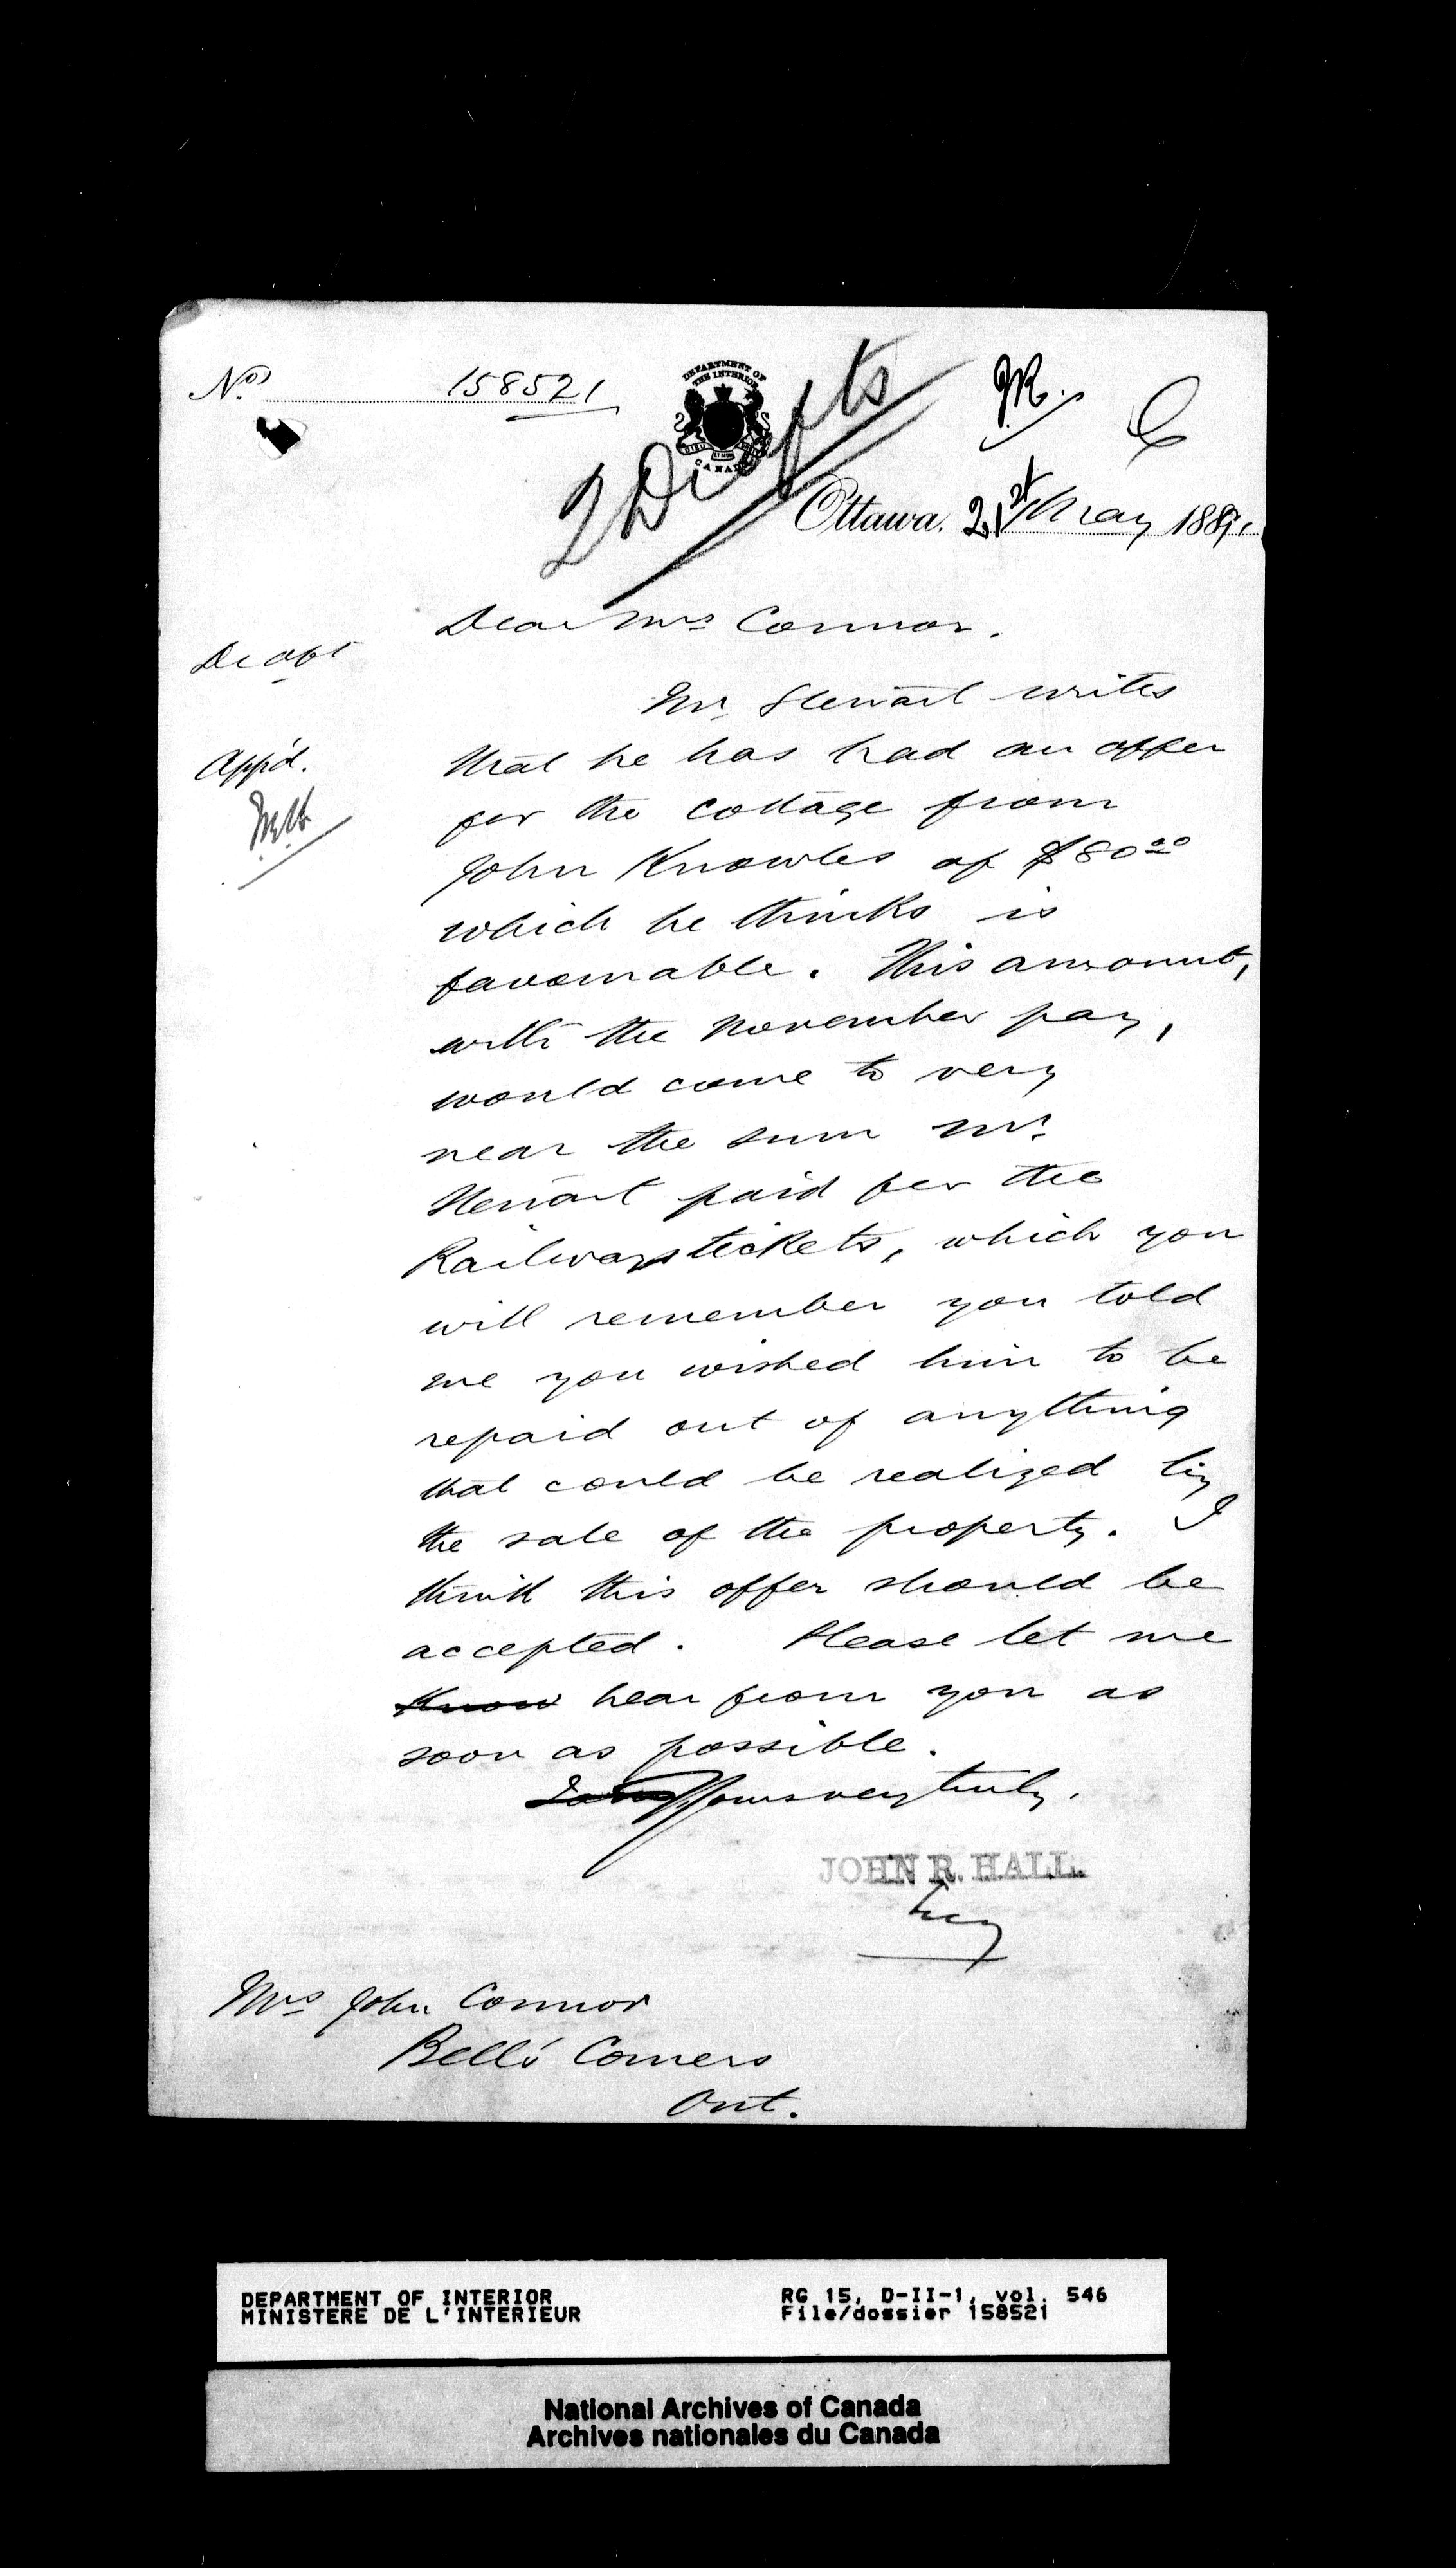 No. 158521
DEPARTMENT OF
THE INTERIOR
CANADA
2 Drafts
Ottawa. 21st May 1887.
Dear Mrs Connor.
Draft
Mr. Stewart writes
App'd.
that he has had an offer
for the cottage from
John Knowles of $80.00
which he thinks is
favourable. This amount,
with the November pay,
would come to very
near the sum Mr.
Stewart paid for the
Railway tickets, which you
will remember you told
me you wished him to be
repaid out of anything
that could be realized by
the sale of the property. I
think this offer should be
accepted. Please let me
know hear from you as
soon as possible.
Yours very truly,
JOHN R. HALL.
Secy
Mrs John Connor
Bell's Corners
Ont.
DEPARTMENT OF INTERIOR
MINISTERE DE L'INTERIEUR
RG 15, D-II-1, vol. 546
File/dossier 158521
National Archives of Canada
Archives nationales du Canada